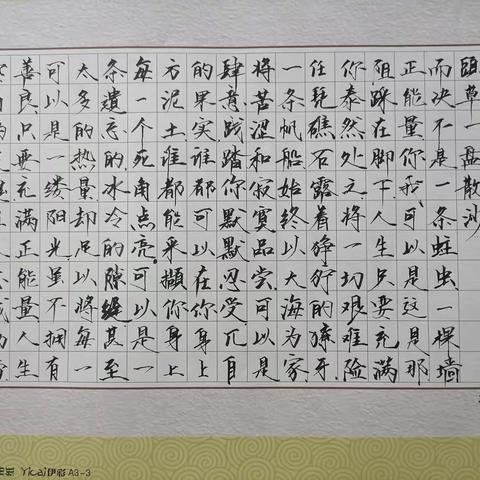 頭草一盘散沙
而决不是一条蛀虫一棵墙
正能量你我可以是这是那
阻踩在脚下人生只要充满
你泰然处之将一切艰难险
任凭礁石露着狰狞的獠牙
一条帆船始终以大海为家
将苦涩和寂寞品尝可以是
肆意践踏你默默忍受兀自
的果实谁都可以在你身上
方泥土谁都能采撷你身上
每一个死角点亮。可以是一
条遗忘的冰冷的隙缝甚至
太多的热量却足以将每一
可以是一缕阳光虽不拥有
善良只要充满正能量人生
Yicai伊彩 A3-3